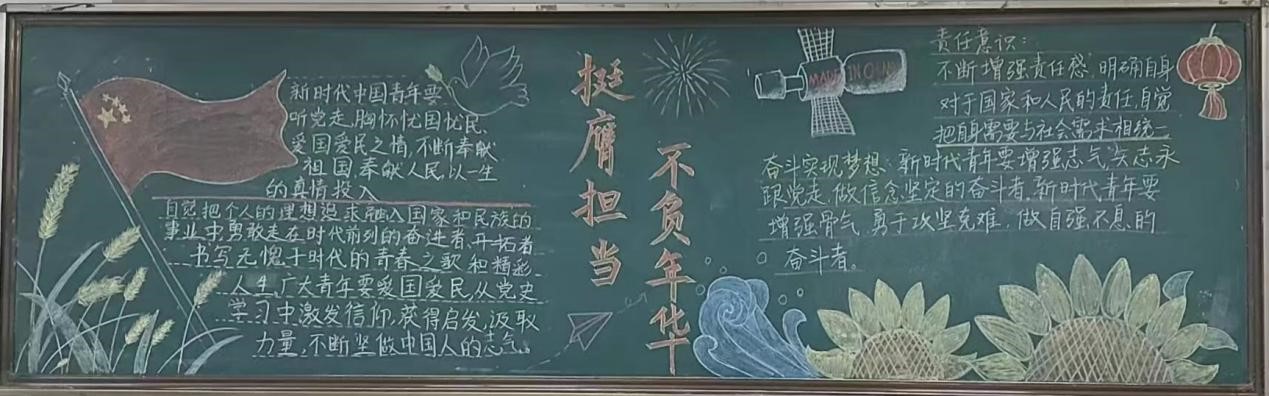 新时代中国青年要
听党走,胸怀忧国忧民、
爱国爱民之情,不断奉献
祖国奉献人民,以一生
的真情投入
自觉把个人的理想追求融入国家和民族的
事业中,勇敢走在时代前列的奋进者、开拓者
书写无愧于时代的青春之歌和精彩
人生,广大青年要爱国爱民,从党史
学习中激发信仰,获得启发,汲取
力量,不断坚做中国人的志气。
挺膺担当
不负年华
MADE IN
责任意识:
不断增强责任感,明确自身
对于国家和人民的责任,自觉
把自身需要与社会需求相统一
奋斗实现梦想:新时代青年要增强志气,矢志永
跟党走,做信念坚定的奋斗者,新时代青年要
增强骨气,勇于攻坚克难,做自强不息的
奋斗者。